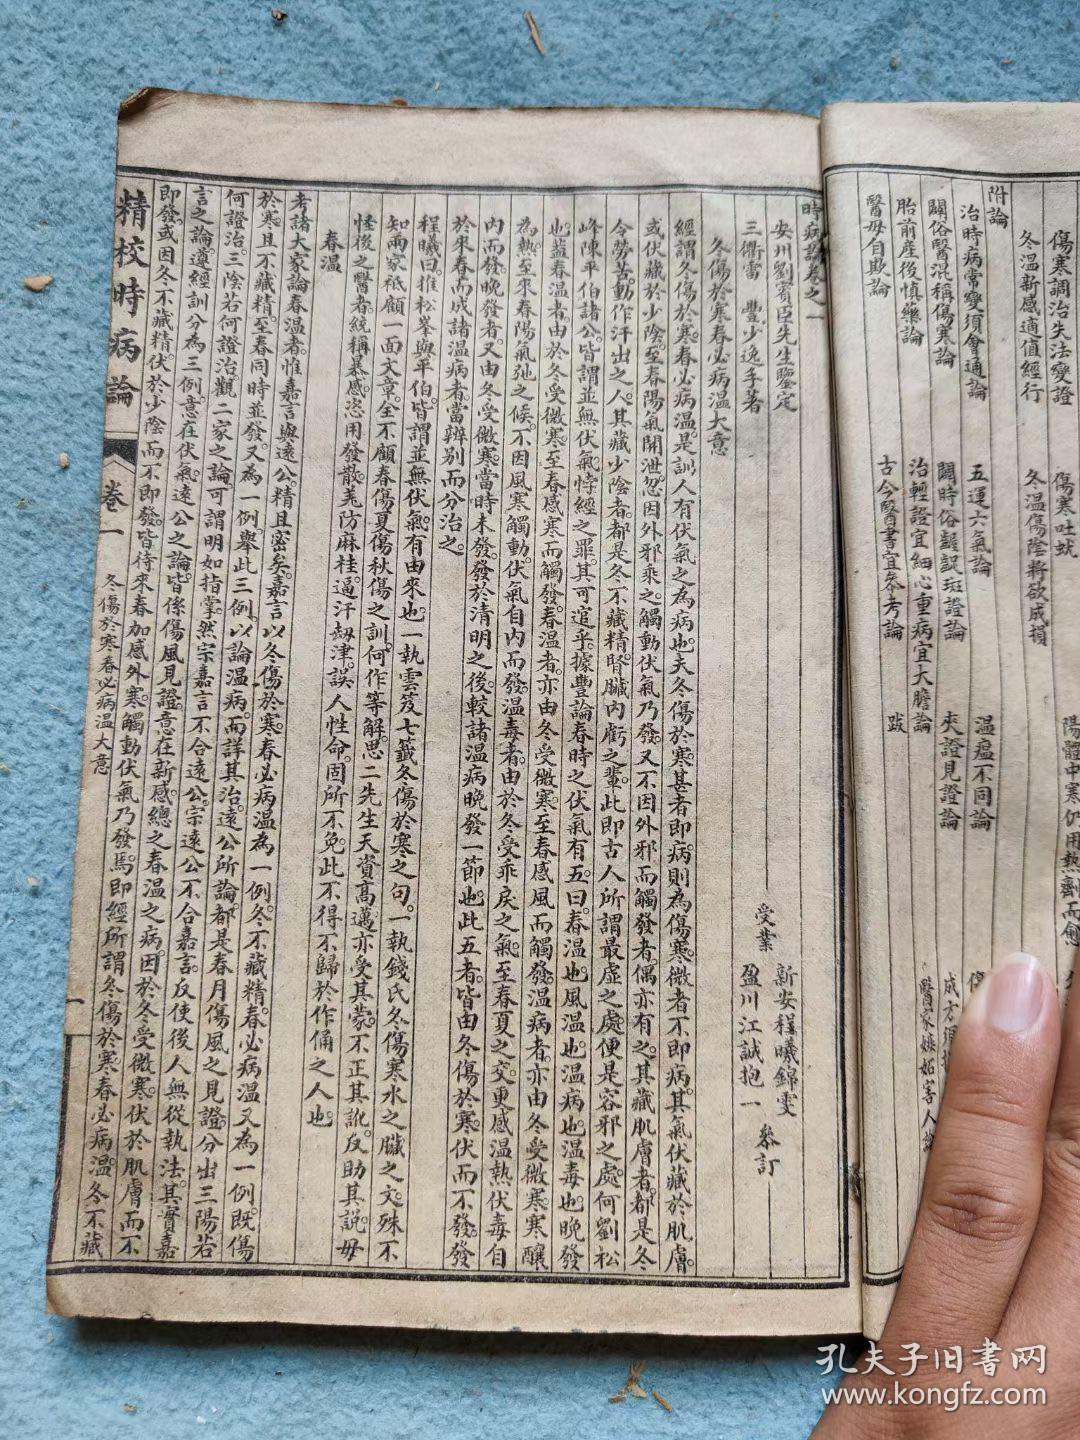 傷寒調治失法變證
傷寒吐蚘
陽體中寒仍用熱劑而愈
冬溫新感適值經行
冬溫傷陰將欲成損
附論
治時病常變須會通論
五運六氣論
溫瘟不同論
闢俗醫混稱傷寒論
闢時俗齷齪斑證論
夾證見證論
成方
胎前產後慎藥論
治輕證宜細心重病宜大膽論
醫家嫉妬害人論
醫毋自欺論
古今醫書宜參考論
跋
時病論卷之一
安州劉賓臣先生鑒定
受業
新安程曦錦雯
盈川江誠抱一
參訂
三衢雷豐少逸手著
冬傷於寒春必病溫大意
經謂冬傷於寒春必病溫是訓人有伏氣之為病也夫冬傷於寒甚者即病則為傷寒微者不即病其氣伏藏於肌膚
或伏藏於少陰至春陽氣開泄忽因外邪乘之觸動伏氣乃發又不因外邪而觸發者偶亦有之其藏肌膚者都是冬
令勞苦動作汗出之人其藏少陰者都是冬不藏精腎臟內虧之輩此即古人所謂最虛之處便是容邪之處何劉松
峰陳平伯諸公皆謂並無伏氣悖經之罪其可逭乎據豐論春時之伏氣有五曰春溫也風溫也溫病也溫毒也晚發
也蓋春溫者由於冬受微寒至春感寒而觸發春溫者亦由冬受微寒至春感風而觸發溫病者亦由冬受微寒寒釀
為熱至來春陽氣弛之候不因風寒觸動伏氣自內而發溫毒者由於冬受乖戾之氣至春夏之交更感溫熱伏毒自
內而發晚發者又由冬受微寒當時未發發於清明之後較諸溫病晚發一節也此五者皆由冬傷於寒伏而不發發
於來春而成諸溫病者當辨別而分治之
程曦曰推松峯與平伯皆謂並無伏氣有由來也一執雲笈七籤冬傷於寒之句一執錢氏冬傷寒水之臟之文殊不
知兩家祗顧一面文章全不顧春傷夏傷秋傷之訓何作等解思二先生天資高邁亦受其蒙不正其訛反助其說毋
怪後之醫者統稱暴感恣用發散羗防麻桂逼汗刼津誤人性命固所不免此不得不歸於作俑之人也
春溫
考諸大家論春溫者惟嘉言與遠公精且密矣嘉言以冬傷於寒春必病溫為一例冬不藏精春必病溫又為一例既傷
於寒且不藏精至春同時並發又為一例舉此三例以論溫病而詳其治遠公所論都是春月傷風之見證分出三陽若
何證治三陰若何證治觀二家之論可謂明如指掌然宗嘉言不合遠公宗遠公不合嘉言反使後人無從執法其實嘉
言之論遵經訓分為三例意在伏氣遠公之論皆係傷風見證意在新感總之春溫之病因於冬受微寒伏於肌膚而不
即發或因冬不藏精伏於少陰而不即發皆待來春加感外寒觸動伏氣乃發焉即經所謂冬傷於寒春必病溫冬不藏
精校時病論
卷一
冬傷於寒春必病溫大意
一
孔夫子旧書网
www.kongfz.com